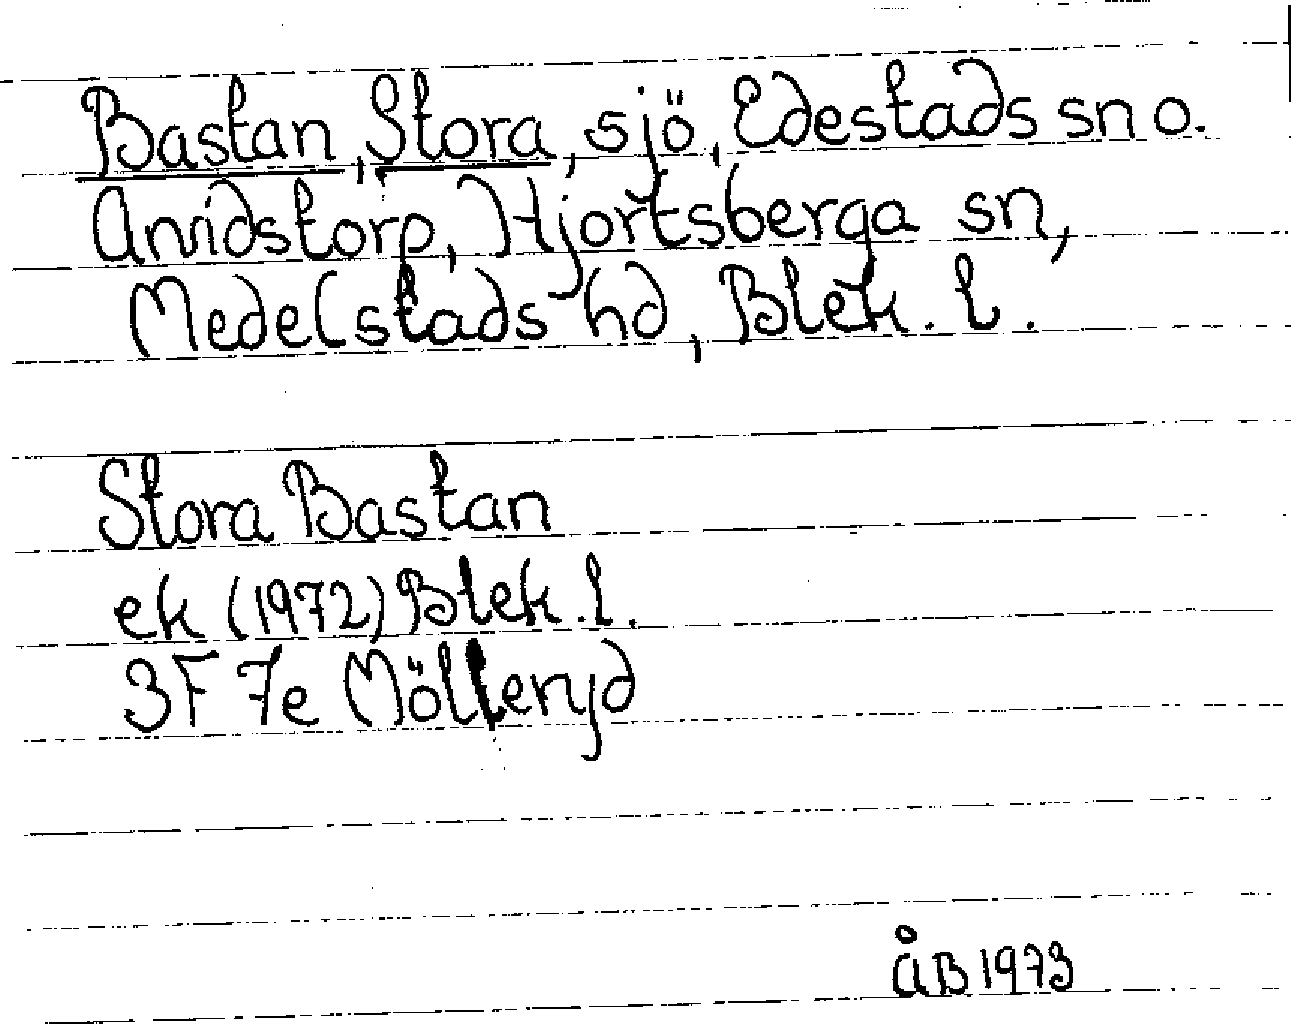 Bastan, Stora, sjö, Edestads sn o.
Arvidstorp, Hjortsberga sn,
Medelstads hd, Blek. l.
Stora Bastan
ek (1972) Blek. l.
3F 7e Möllenyd
ÅB 1973